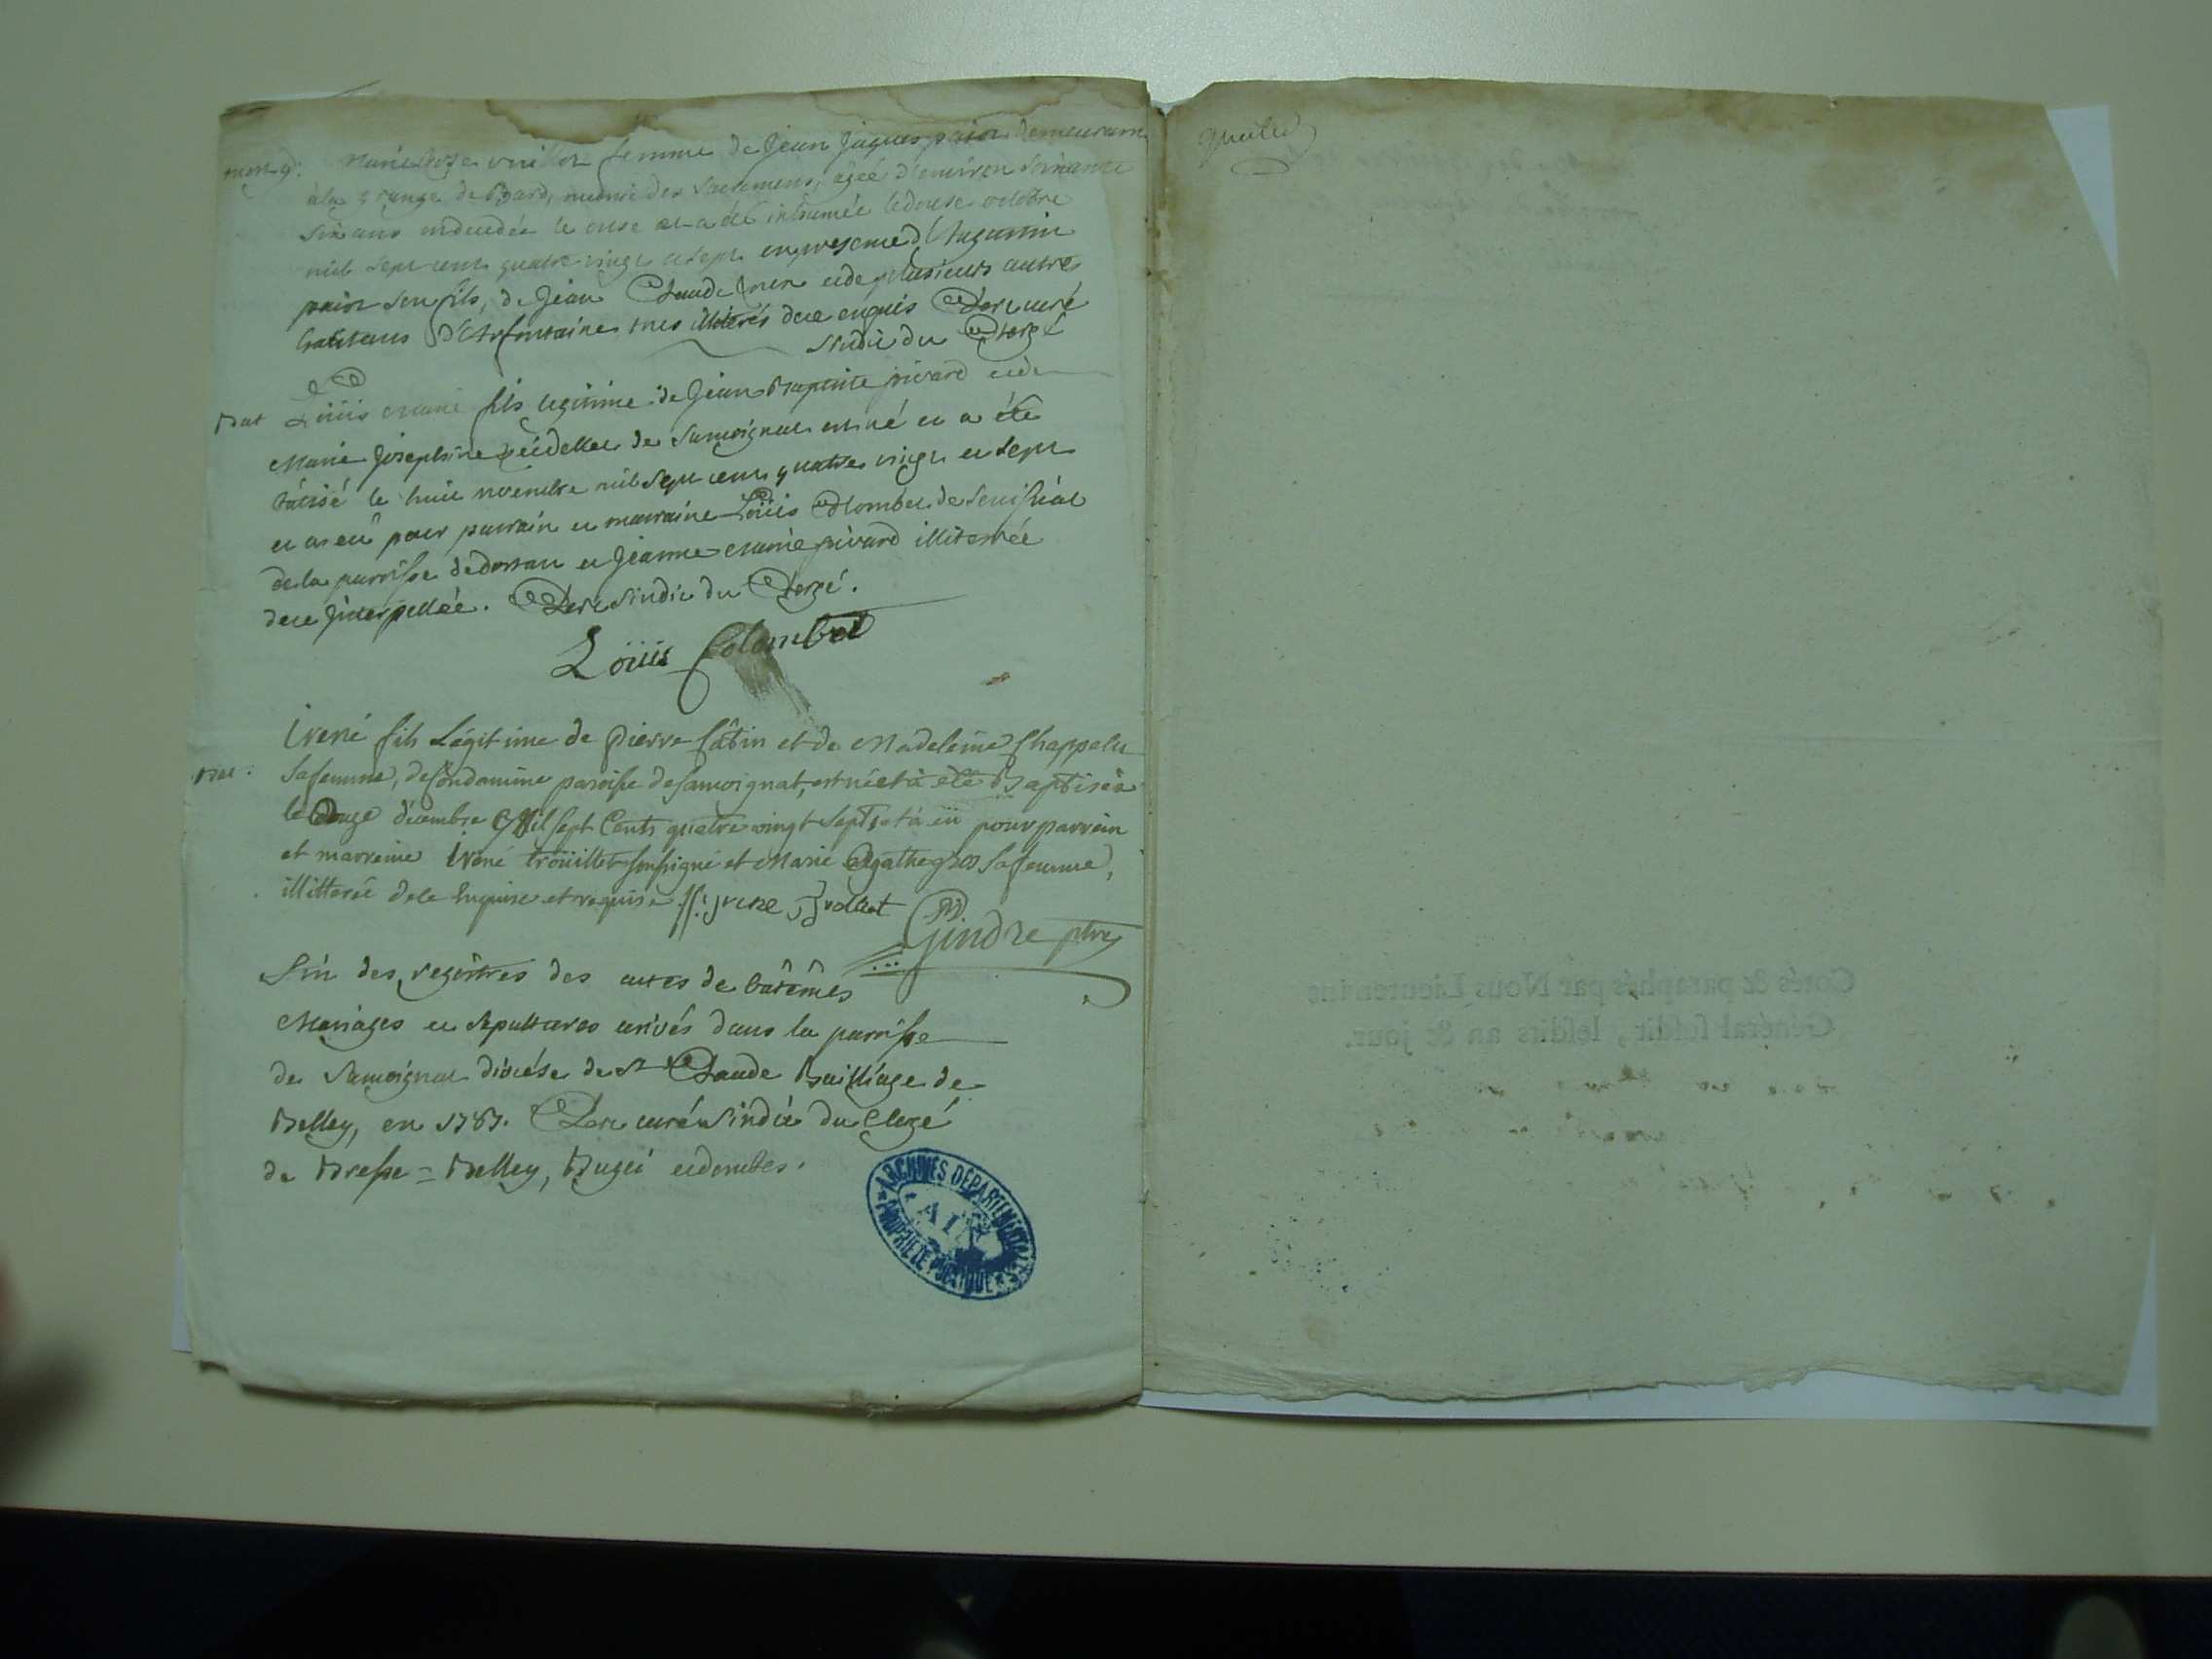 mort 9: Marie Roze vuillot femme de Jean Jaques demeurant
à la grange de Bard, munie des Sacremens, agée d'environ soixante
six ans est decedée le onse et a été inhumée le douse octobre
mil sept cent quatre vingt et sept en presence d'Augustin
son fils, de Jean Claude et de plusieurs autres
habitans d'Arfontaine tous illiterés de ce enquis Clerc curé
sindic du Clergé
Bat Loüis marie fils legitime de Jean Baptiste pivard et de
Marie Josephine de Samoignat est né et a été
batisé le huit novembre mil sept cent quatre vingt et sept
et a eû pour parrain et marraine Loüis Colombet de
de la paroisse de dortan et Jeanne marie pivard illiterée
de ce Interpellée. Clerc sindic du Clergé.
Loüis Colombet
Irené fils Légitime de Pierre et de Madeleine Chappelu
Bat. sa femme, de Condamine paroisse de samoignat, est né et à été Baptisé
le douze décembre Mil sept Cents quatre vingt sept, et à eü pour parrain
et marreine Irené troüillet soussigné et Marie Agathe gros sa femme,
illitterée de ce Enquise et requise
Gindre ptre
Fin des registres des actes de batêmes
Mariages et sepultures arivés dans la paroisse
de Samoignat diocése de St Claude Bailliage de
Belley, en 1787. Clerc curé sindic du Clergé
de Bresse = Belley, Bugei et dombes.
ARCHIVES DEPARTEMENTALES
AIN
PROPRIETE PUBLIQUE
Cotés & paraphés par Nous Lieutenant
Général susdit, lesdits an & jour.